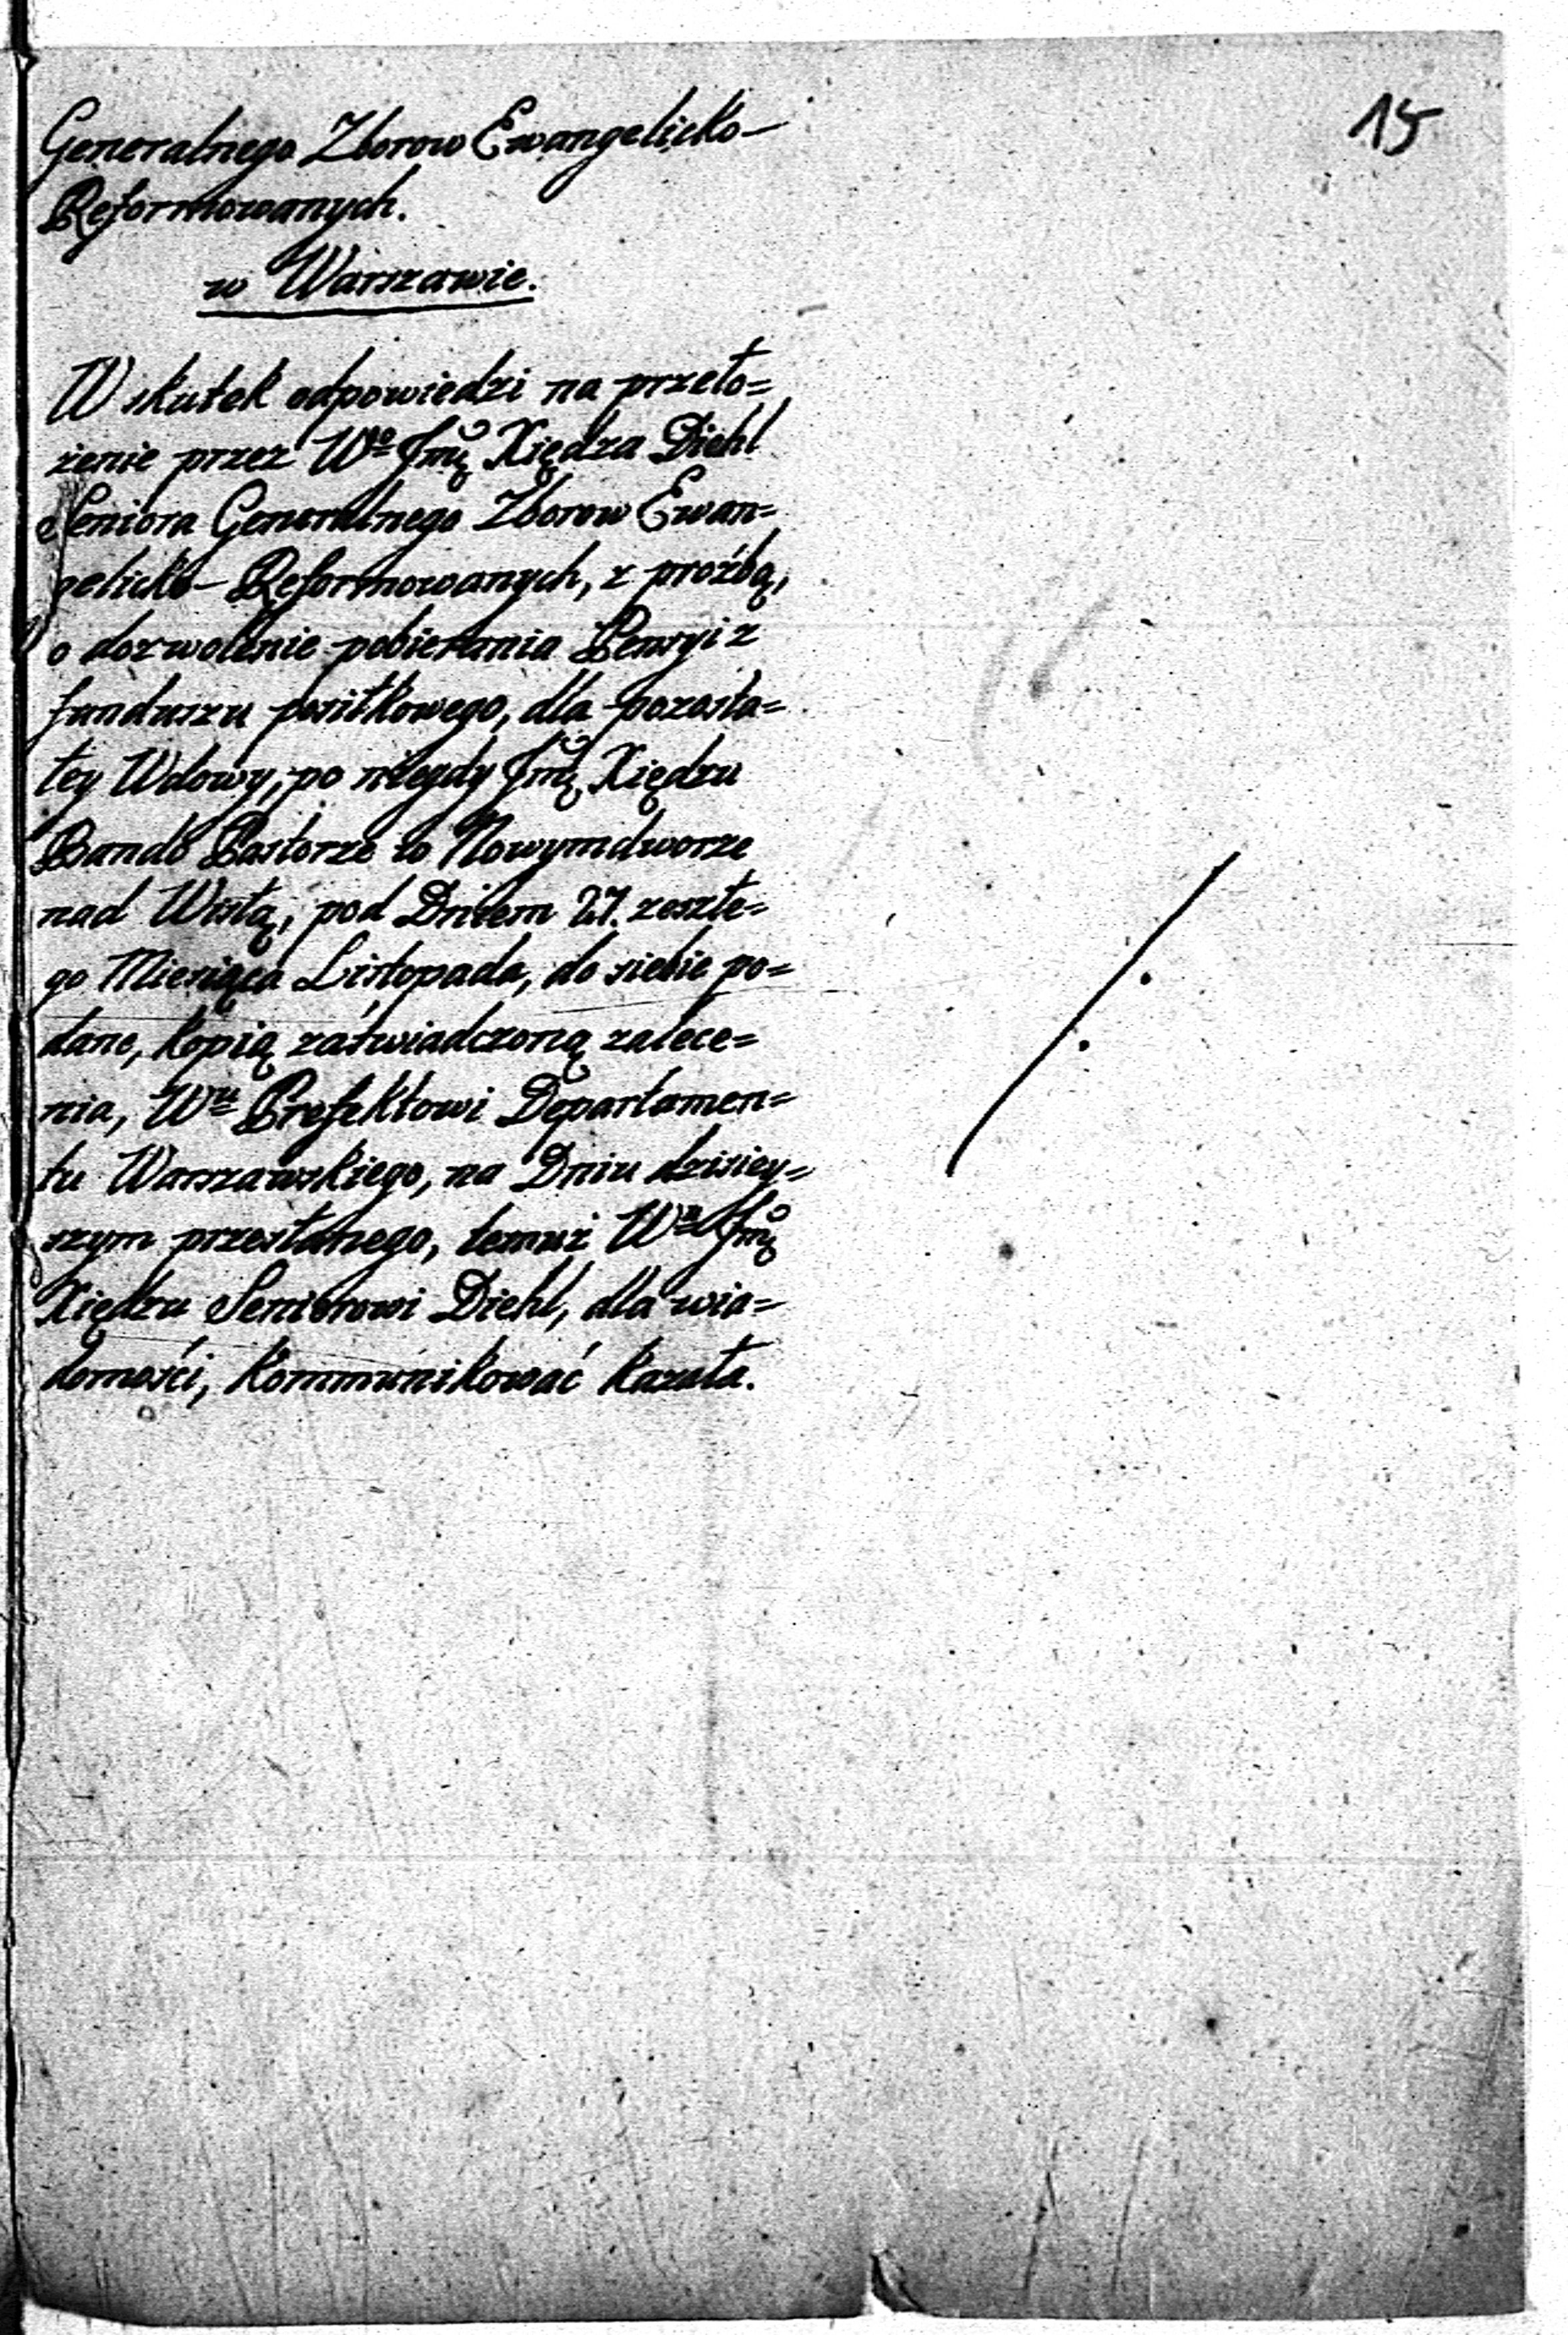 15
Generalnego Zborow Ewangelicko-
Reformowanych.
w Warszawie.
W skutek odpowiedzi na przeło=
żenie przez Wº Jmę Xiędza Diehl
Seniora Generalnego Zborow Ewan=
gelicko-Reformowanych, z proźbą,
o dozwolenie pobierania Pensyi z
funduszu posiłkowego, dla pozosta=
łey Wdowy, po niegdy Jmę Xiędzu
Bando Pastorze w Nowymdworze
nad Wisłą, pod Dniem 27. zeszłe=
go Miesiąca Listopada, do siebie po=
dane, kopią zaświadczoną zalece=
nia, Wu Prefektowi Departamen=
tu Warszawskiego, na Dniu dzisiey=
szym przesłanego, temuż Wu Jmę
Xiędzu Seniorowi Diehl, dla wia=
domości, kommunikować kazała.